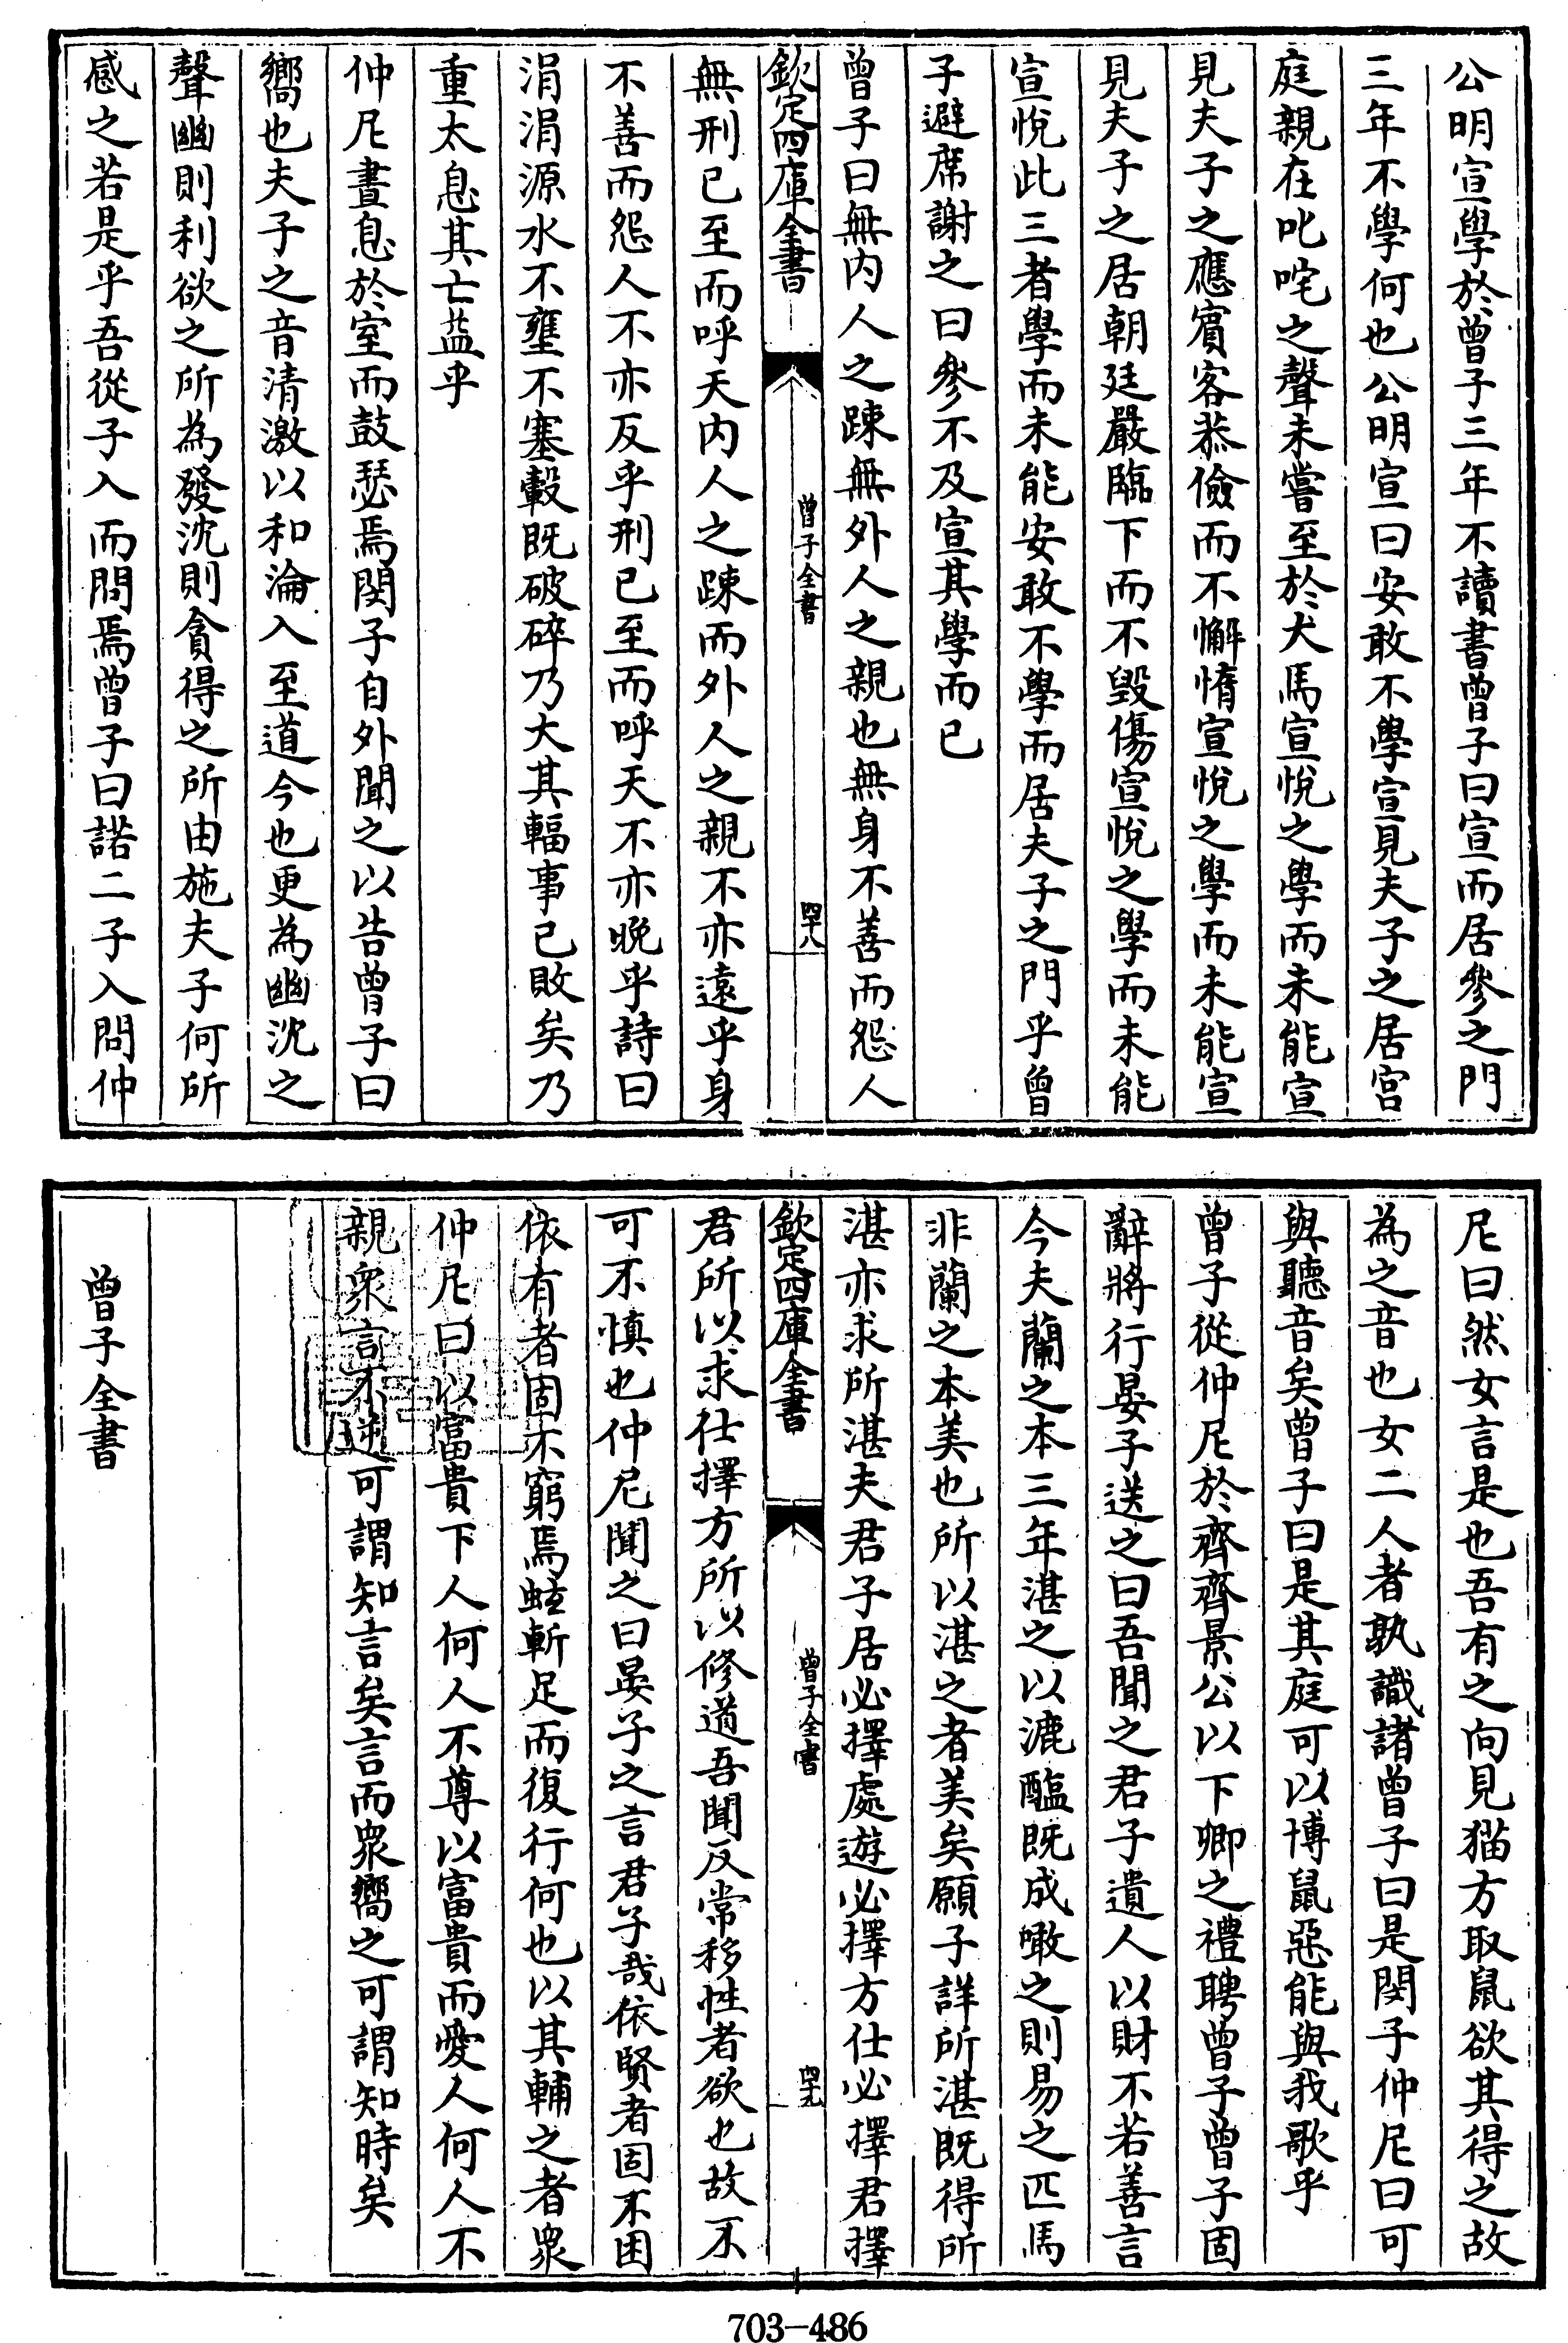 公明宣學於曾子三年不讀書曾子曰宣而居參之門
三年不學何也公明宣曰安敢不學宣見夫子之居宮
庭親在叱咤之聲未嘗至於犬馬宣悅之學而未能宣
見夫子之應賓客恭儉而不懈惰宣悅之學而未能宣
見夫子之居朝廷嚴臨下而不毀傷宣悅之學而未能
宣悅此三者學而未能安敢不學而居夫子之門乎曾
子避席謝之曰參不及宣其學而已
曾子曰無內人之踈無外人之親也無身不善而怨人
欽定四庫全書
曾子全書
四十八
無刑已至而呼天內人之踈而外人之親不亦遠乎身
不善而怨人不亦反乎刑已至而呼天不亦晚乎詩曰
涓涓源水不壅不塞轂既破碎乃大其輻事已敗矣乃
重太息其亡益乎
仲尼晝息於室而鼓瑟焉閔子自外聞之以告曾子曰
嚮也夫子之音清激以和淪入至道今也更為幽沈之
聲幽則利欲之所為發沈則貪得之所由施夫子何所
感之若是乎吾從子入而問焉曾子曰諾二子入問仲
尼曰然女言是也吾有之向見猫方取鼠欲其得之故
為之音也女二人者孰識諸曾子曰是閔子仲尼曰可
與聽音矣曾子曰是其庭可以博鼠惡能與我歌乎
曾子從仲尼於齊齊景公以下卿之禮聘曾子曾子固
辭將行晏子送之曰吾聞之君子遺人以財不若善言
今夫蘭之本三年湛之以漉醢既成噉之則易之匹馬
非蘭之本美也所以湛之者美矣願子詳所湛既得所
湛亦求所湛夫君子居必擇處遊必擇方仕必擇君擇
欽定四庫全書
曾子全書
四十九
君所以求仕擇方所以修道吾聞反常移性者欲也故不
可不慎也仲尼聞之曰晏子之言君子哉依賢者固不困
依有者固不窮焉蚿斬足而復行何也以其輔之者衆
仲尼曰以富貴下人何人不尊以富貴而愛人何人不
親衆言不逆可謂知言矣言而衆嚮之可謂知時矣
曾子全書
703-486